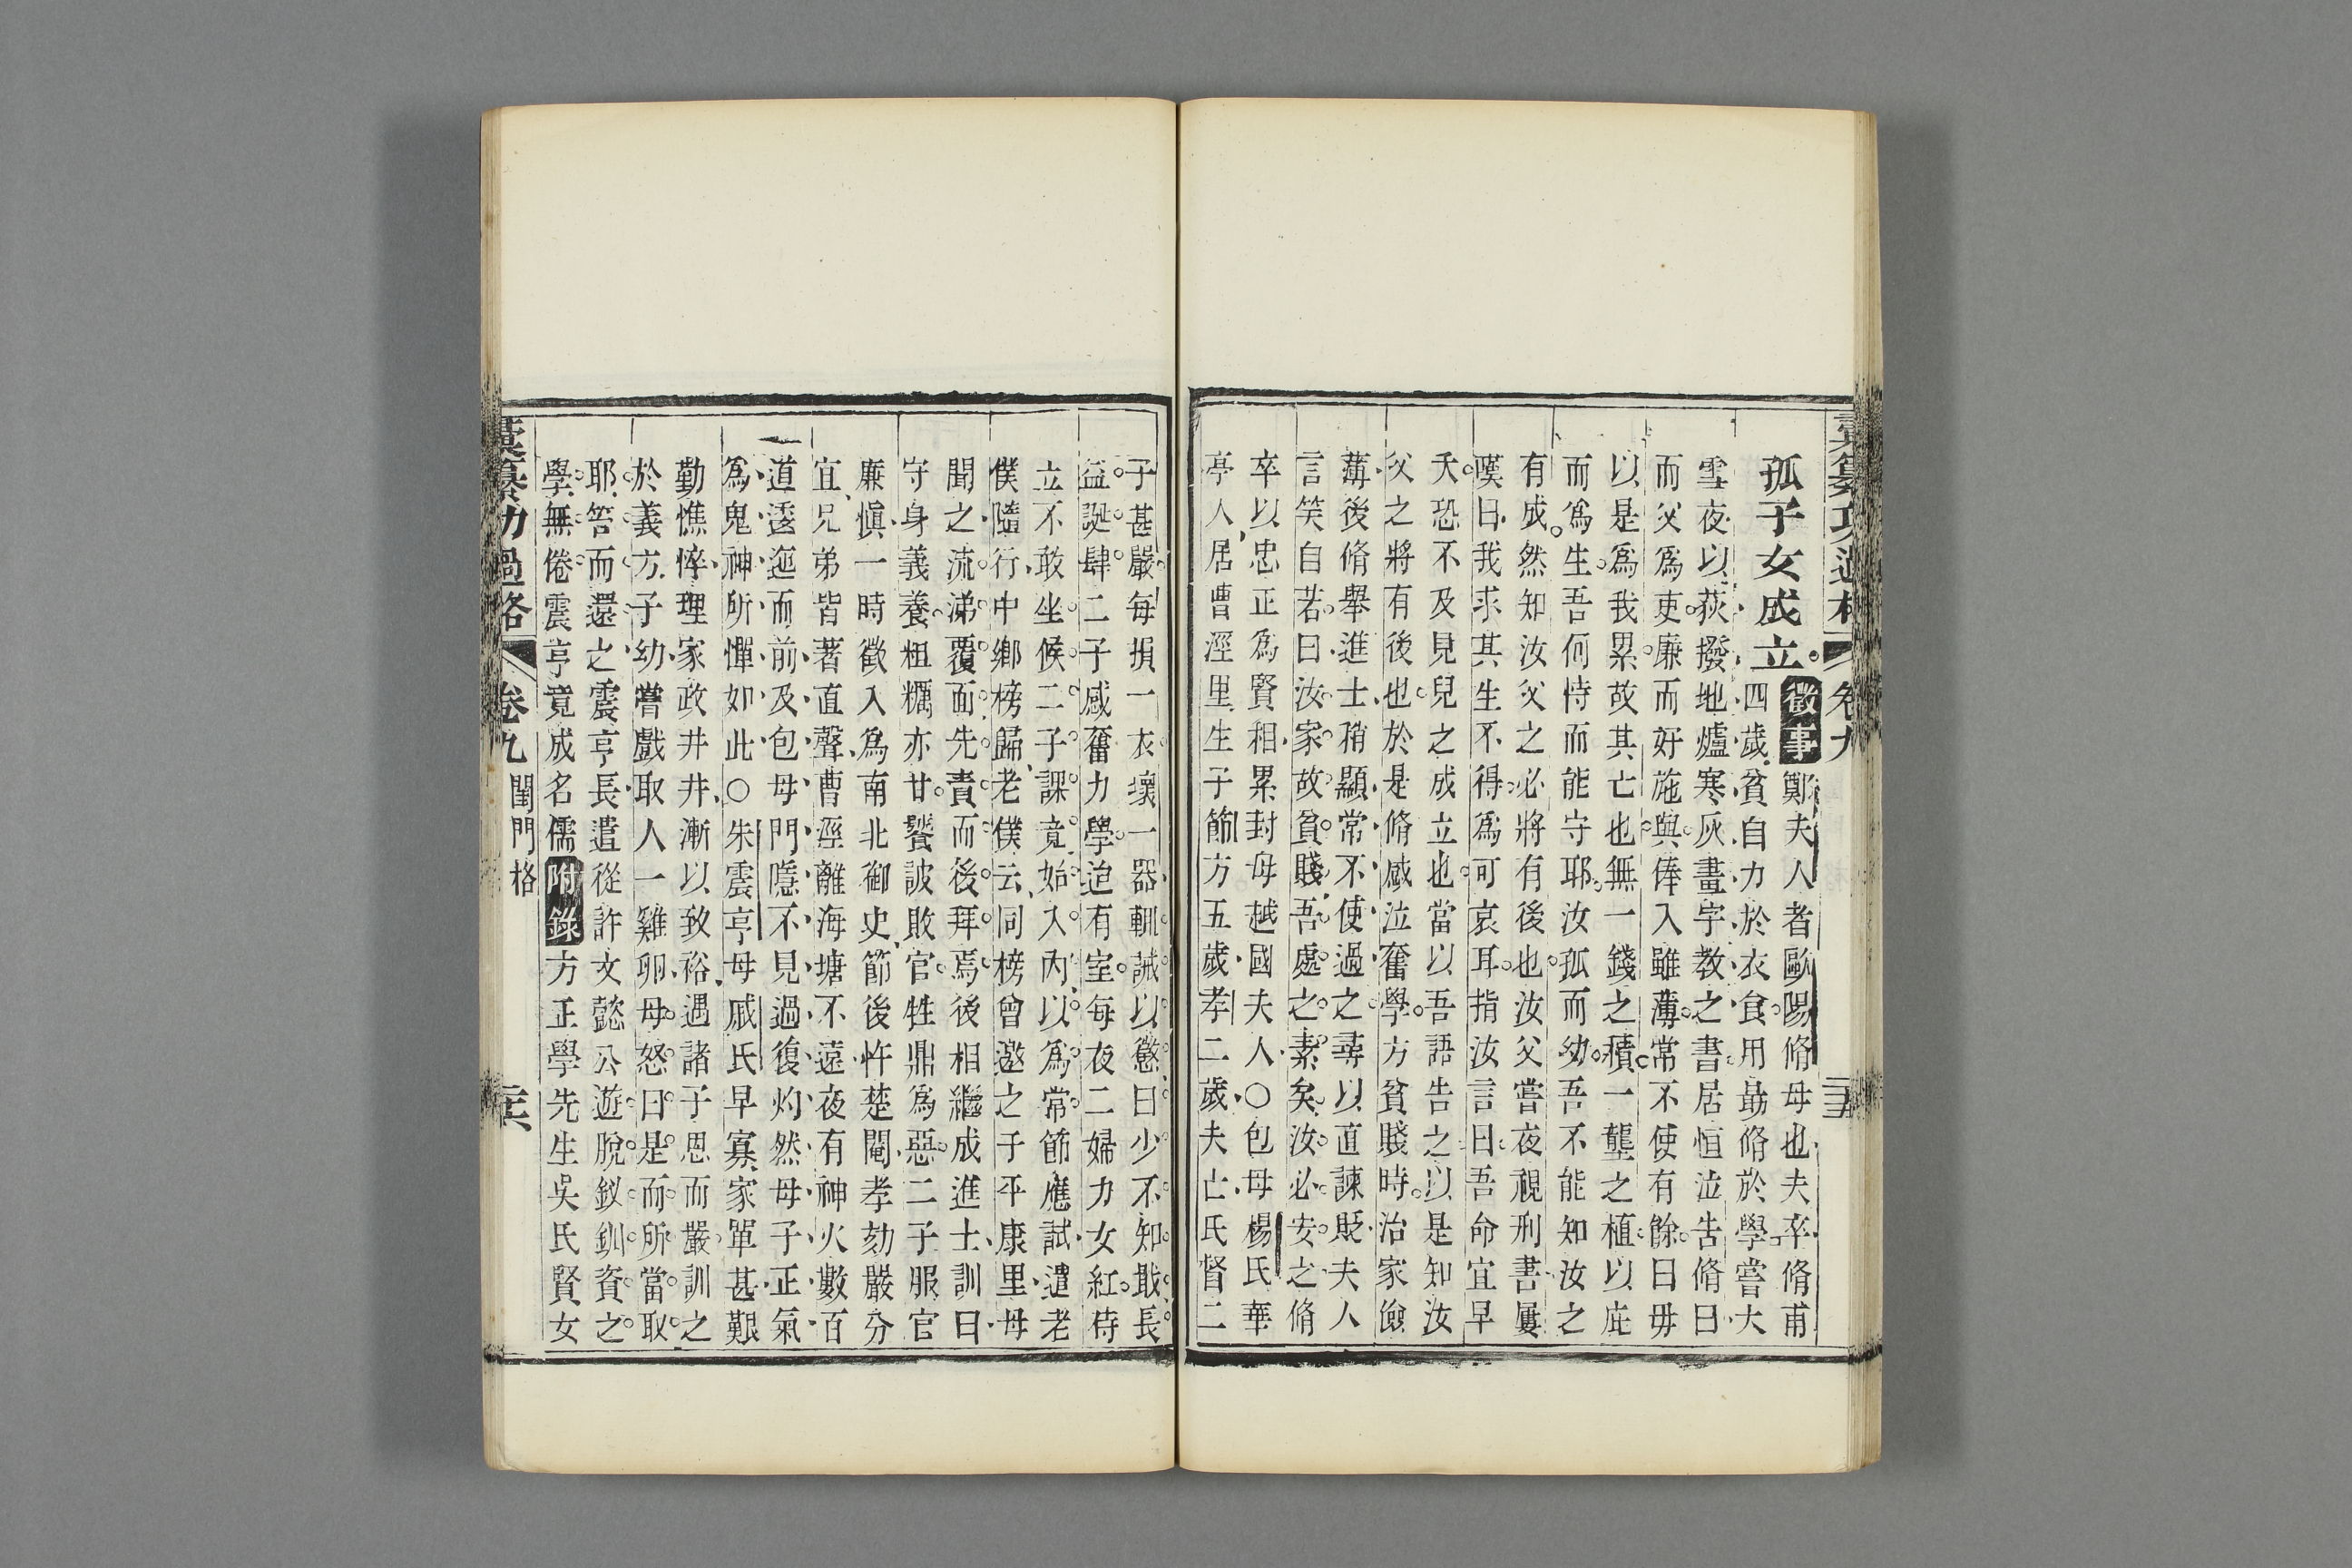 彚纂功過格 卷九 二十五
孤子女成立。徵事鄭夫人者歐陽脩母也夫卒脩甫
四歲貧自力於衣食用最脩於學嘗大
雪夜以荻撥地爐寒灰畫字教之書居恒泣吿脩曰
而父爲吏廉而好施與俸入雖薄常不使有餘曰毋
以是爲我累故其亡也無一錢之積一壟之植以庇
而爲生吾何恃而能守耶汝孤而幼吾不能知汝之
有成然知汝父之必將有後也汝父嘗夜視刑書屢
嘆曰我求其生不得爲可哀耳指汝言曰吾命宜早
夭恐不及見兒之成立也當以吾語告之以是知汝
父之將有後也於是脩感泣奮學方貧賤時治家儉
薄後脩舉進士稍顯常不使過之尋以直諫貶夫人
言笑自若曰汝家故貧賤吾處之素矣汝必安之脩
卒以忠正爲賢相累封母越國夫人○包母楊氏華
亭人居曹涇里生子節方五歲孝二歲夫亡氏督二
子甚嚴每損一衣壞一器輒誡以懲曰少不知戢長
益誕肆二子感奮力學迨有室每夜二婦力女紅侍
立不敢坐候二子課竟始入內以爲常節應試遣老
僕隨行中鄉榜歸老僕云同榜曾邀之子平康里母
聞之流涕覆面先責而後拜焉後相繼成進士訓曰
守身義養粗糲亦甘饕詖敗官牲鼎爲惡二子服官
廉愼一時徵入爲南北御史節後忤楚閹孝劾嚴分
宜兄弟皆著直聲曹涇離海塘不遠夜有神火數百
道逶迤而前及包母門隱不見過復灼然母子正氣
爲鬼神所憚如此○朱震亨母戚氏早寡家單甚艱
勤憔悴理家政井井漸以致裕遇諸子恩而嚴訓之
於義方子幼嘗戲取人一雞卵母怒曰是而所當取
耶笞而還之震亨長遣從許文懿公遊脫釵釧資之
學無倦震亨竟成名儒附錄方正學先生吳氏賢女
彚纂功過格 卷九 閨門格 二十六